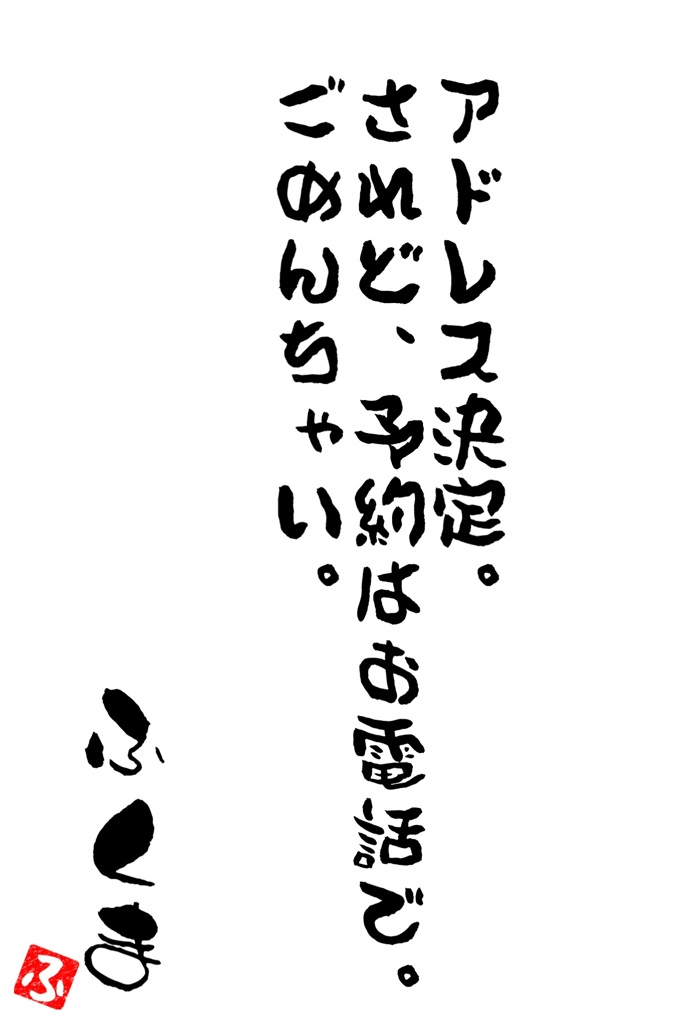 アドレス決定。
されど、予約はお電話で。
ごめんちゃい。
ふくま
ふ